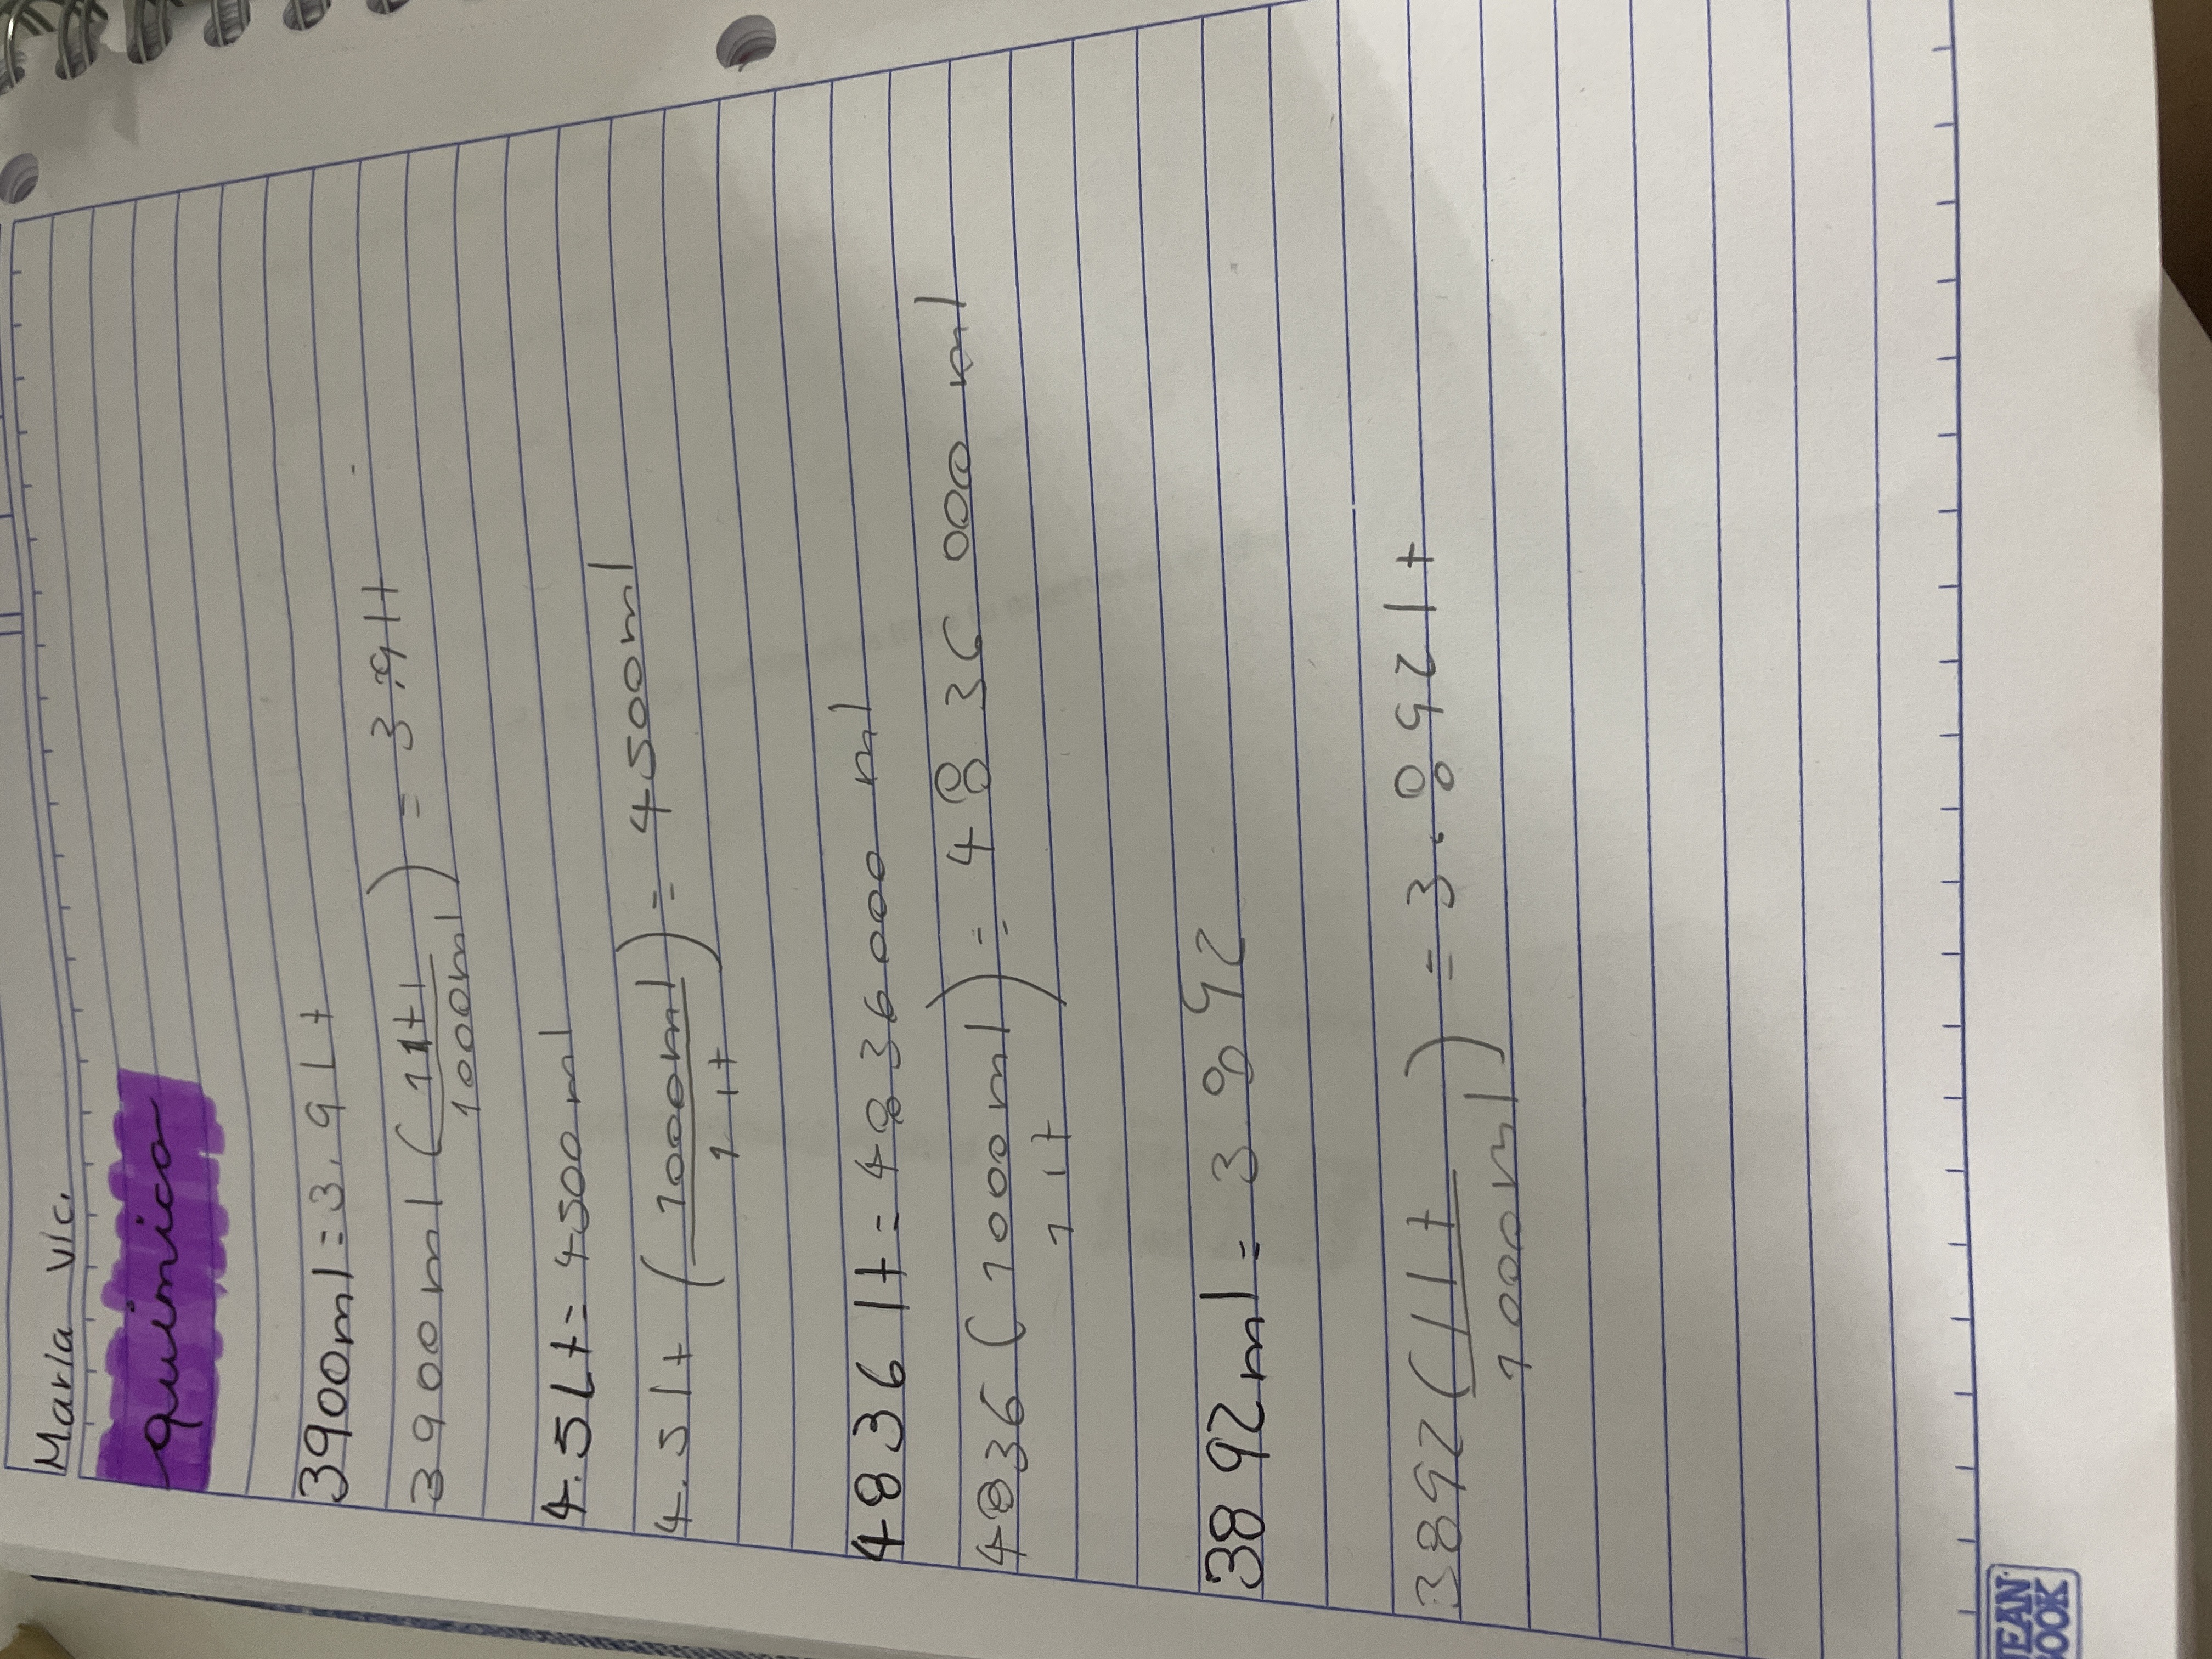 Maria Vic.
quimica
3900ml = 3.9 Lt
3900ml (1lt / 1000ml) = 3.9lt
4.5Lt = 4500ml
4.5lt (1000ml / 1lt) = 4500ml
4836 lt = 4836000 ml
4836 (1000ml / 1lt) = 4836 000 ml
3892ml = 3 892
3892 (1lt / 1000ml) = 3.892lt
EAN
OOK